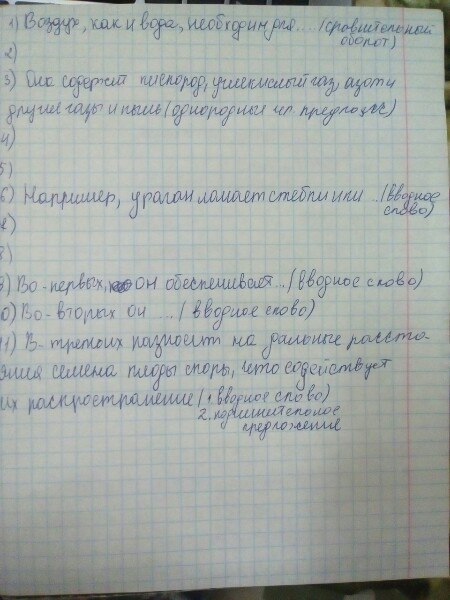 1) Воздух, как и вода, необходим для.... (сравнительный
оборот)
2)
3) Она содержит кислород, углекислый газ, азот и
другие газы и пыль (однородные чл. предлож)
4)
5)
6) Например, ураган ломает стебли или ... (вводное
слово)
7)
8)
9) Во-первых, он обеспечивает... (вводное слово)
10) Во-вторых он ..... (вводное слово)
11) В-третьих разносит на дальные расстоя
яния семена плоды споры, что содействует
их распространение (1. вводное слово)
2. подчинительное
предложение